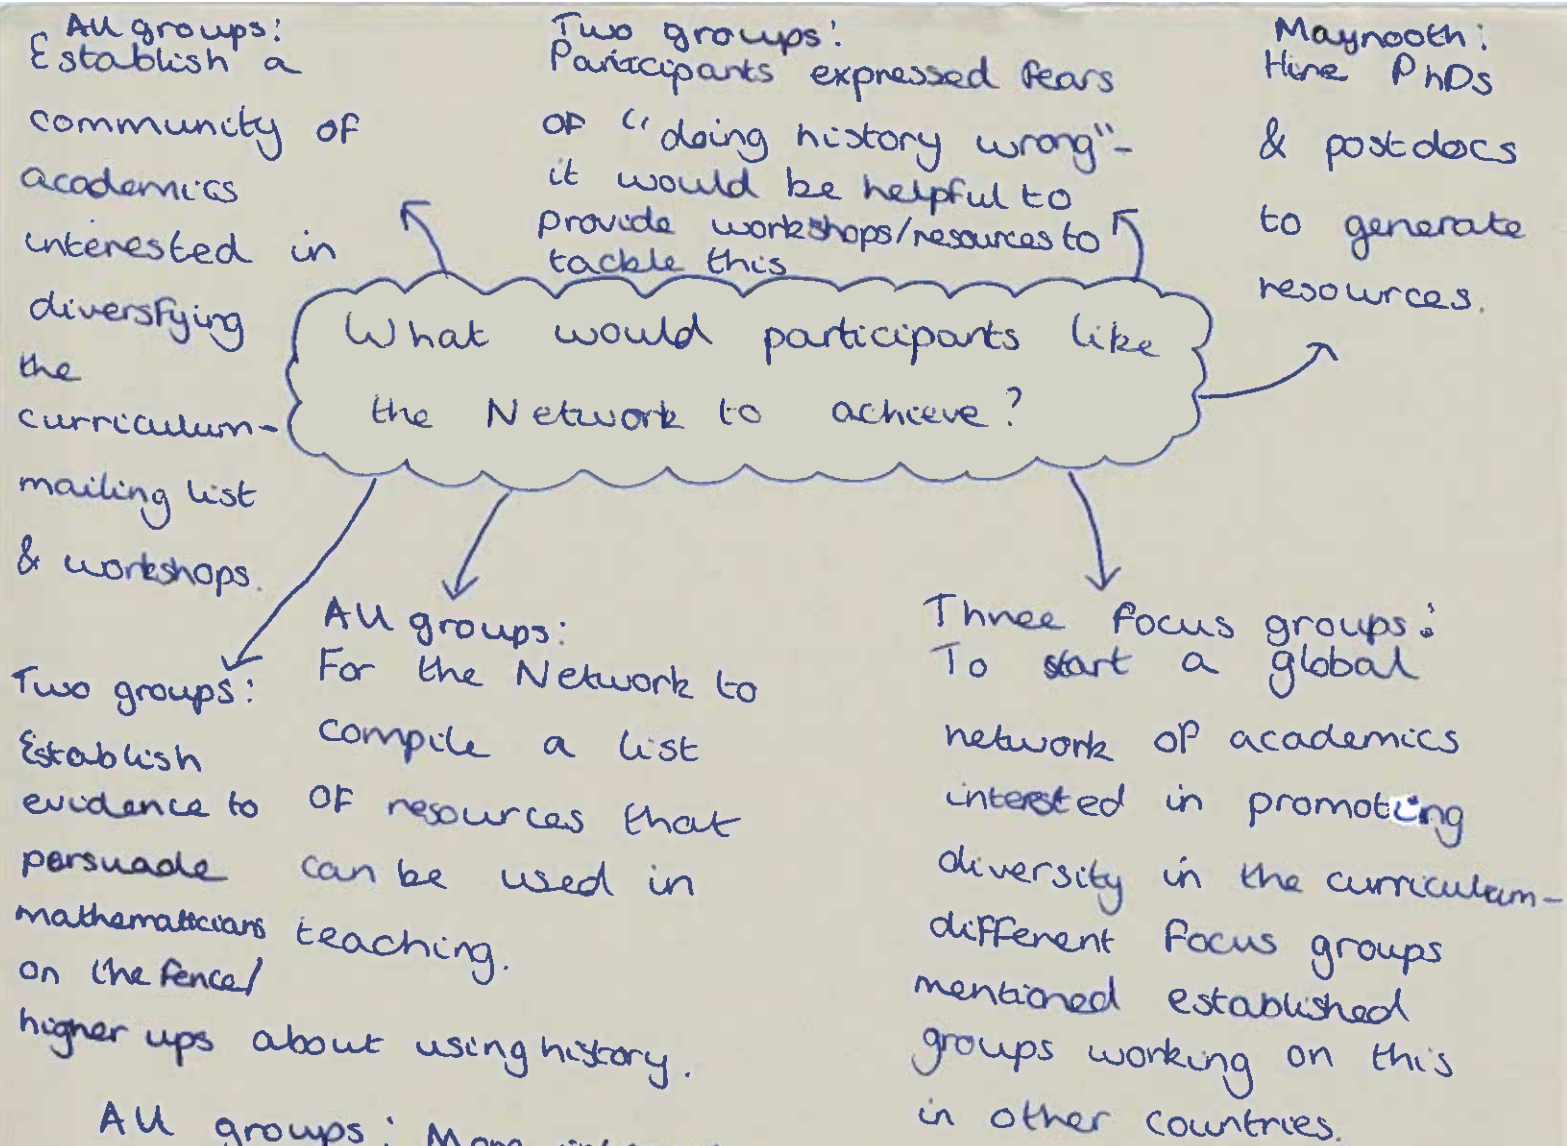 All groups:
Establish a
community of
academics
interested in
diversfying
the
curriculum-
mailing list
& workshops.
Two groups:
Participants expressed fears
of "doing history wrong"-
it would be helpful to
provide workshops/resources to
tackle this
Maynooth:
Hire PhDs
& postdocs
to generate
resources.
What would participants like
the Network to achieve?
Two groups:
Establish
evidence to
persuade
mathematicians
on the fence/
higher ups about using history.
All groups:
For the Network to
compile a list
of resources that
can be used in
teaching.
Three focus groups:
To start a global
network of academics
interested in promoting
diversity in the curriculum-
different focus groups
mentioned established
groups working on this
in other countries.
All groups: More